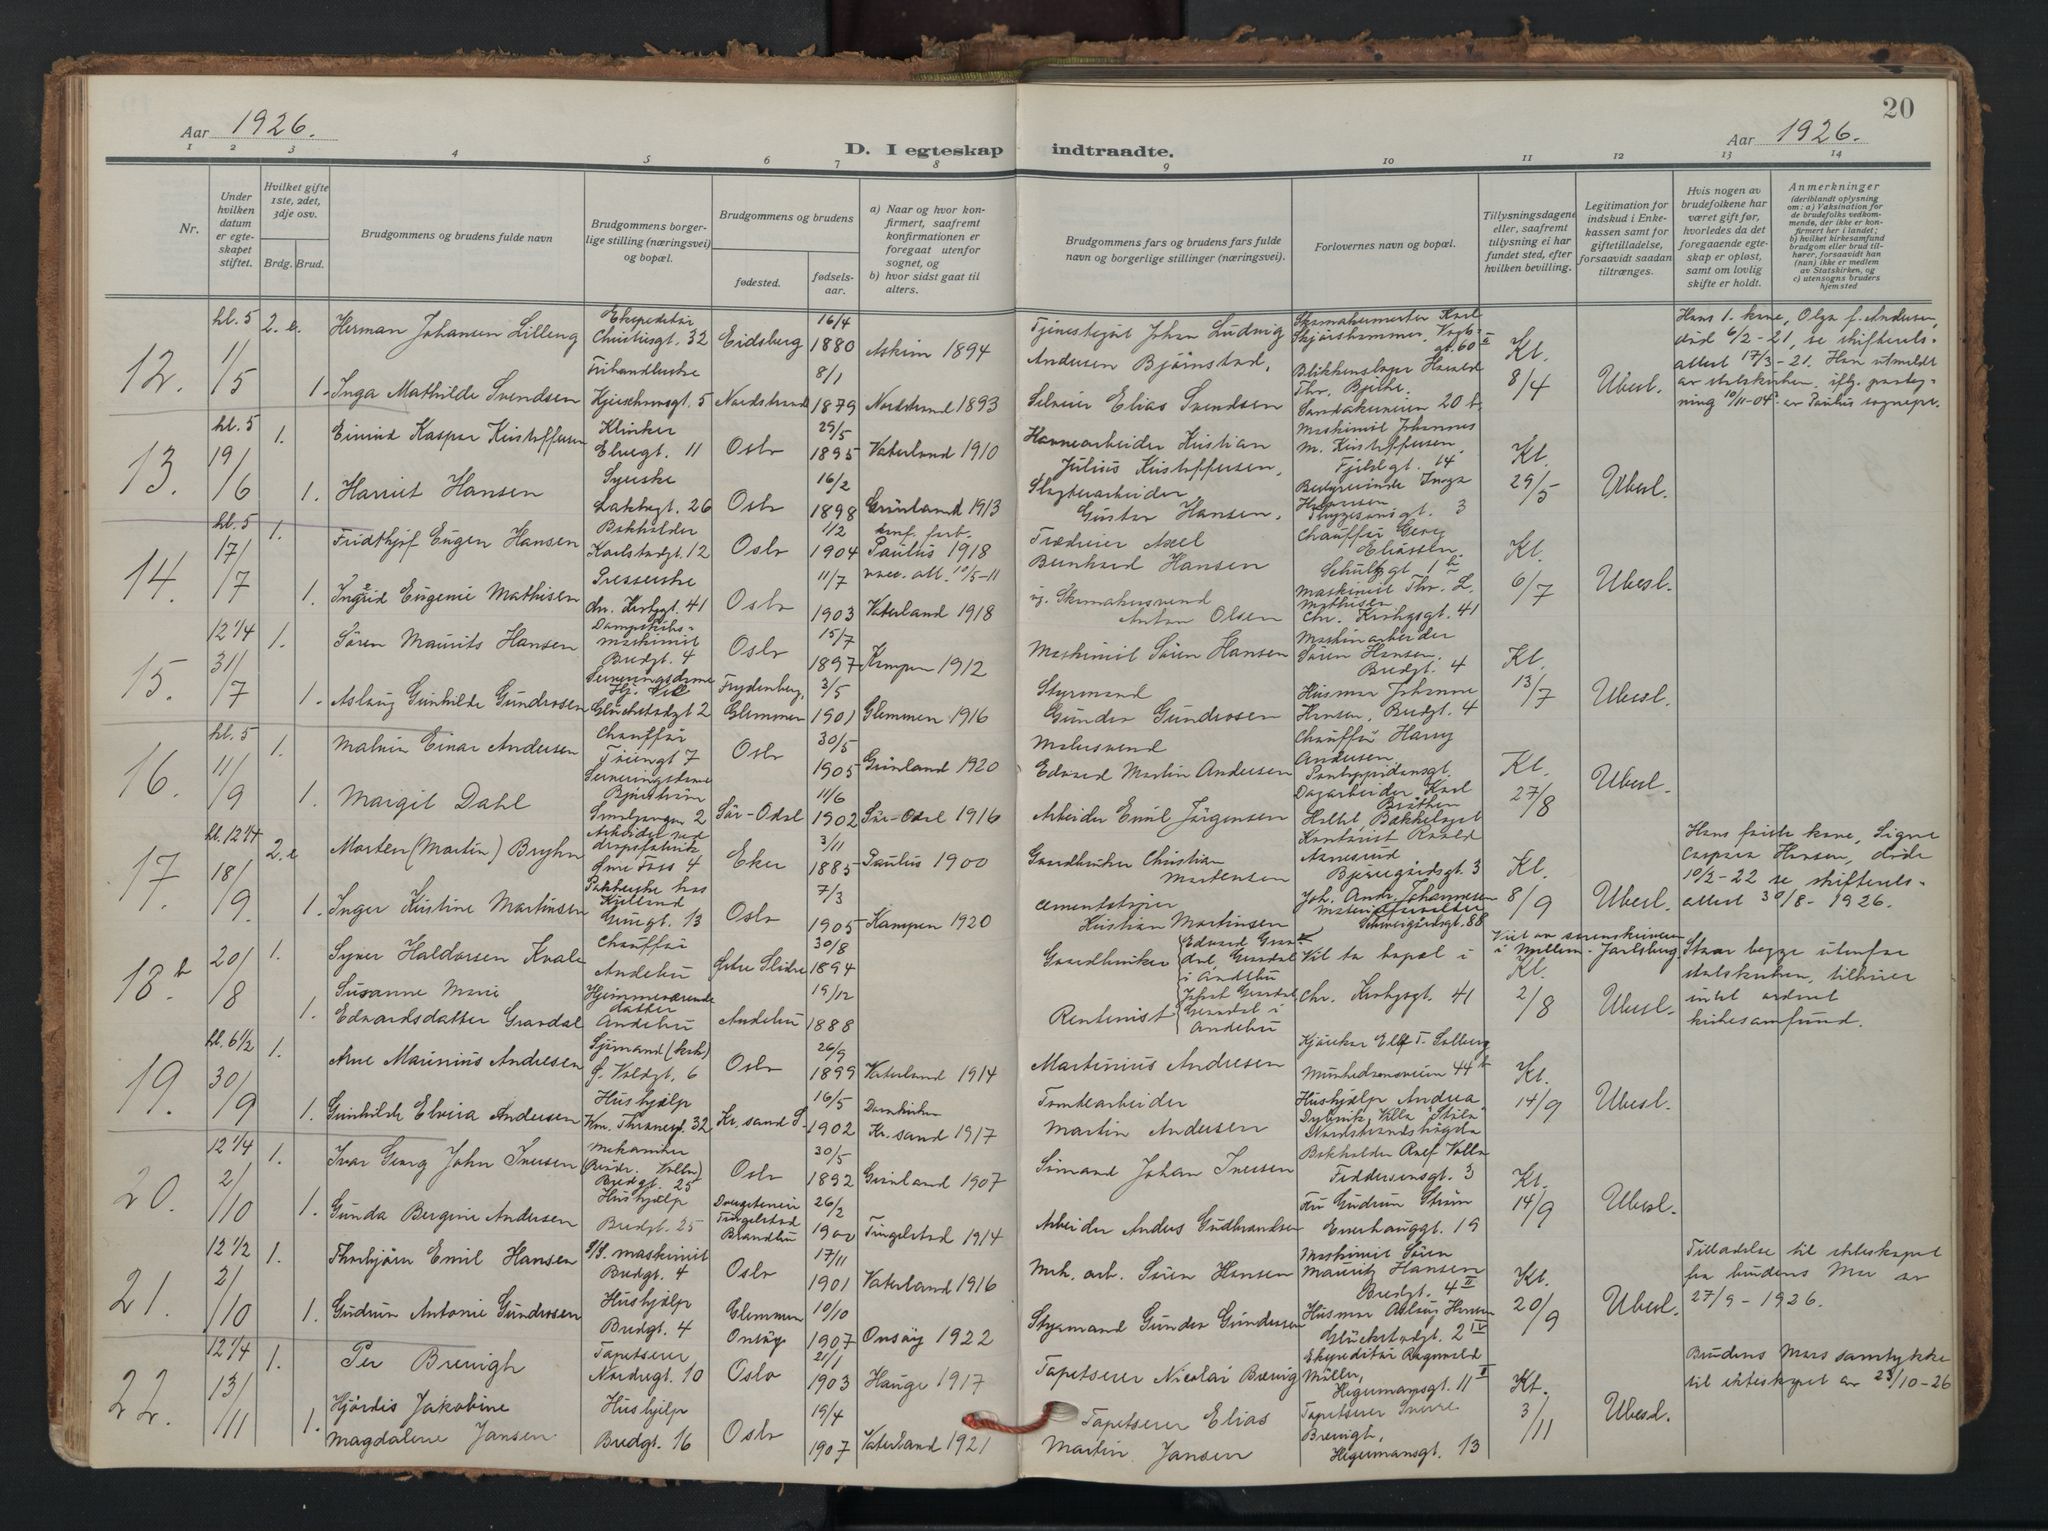 20
Aar 1926.
Aar 1926.
D. I egteskap indtraadte.
1 2 3 4 5 6 7 8 9 10 11 12 13 14
Nr.
Under hvilken datum er egteskapet stiftet.
Hvilket gifte 1ste, 2det, 3dje osv.
Brdg. Brud.
Brudgommens og brudens fulde navn
Brudgommens borgerlige stilling (næringsvei) og bopæl.
Brudgommens og brudens
fødested. fødselsaar.
a) Naar og hvor konfirmert, saafremt konfirmationen er foregaat utenfor sognet, og
b) hvor sidst gaat til alters.
Brudgommens fars og brudens fars fulde navn og borgerlige stillinger (næringsvei).
Forlovernes navn og bopæl.
Tillysningsdagene eller, saafremt tillysning ei har fundet sted, efter hvilken bevilling.
Legitimation for indskud i Enkekassen samt for giftetilladelse, forsaavidt saadan tiltrænges.
Hvis nogen av brudefolkene har været gift før, hvorledes da det foregaaende egteskap er opløst, samt om lovlig skifte er holdt.
Anmerkninger (deriblandt oplysning om: a) Vaksination for de brudefolks vedkommende, der ikke er konfirmert her i landet; b) hvilket kirkesamfund brudgom eller brud tilhører, forsaavidt han (hun) ikke er medlem av Statskirken, og c) utensogns bruders hjemsted
12. kl. 5 1/5 2. e. Herman Johansen Lilleng Christiesgt. 32 Eidsberg 16/4 1880 Askim 1894 Johan Ludvig Andersen Bjørnstad, Kl. 8/4 Ubesl.
Hans 1. kone, Olga f. Andersen, død 6/2-21, se skifteretsattest 17/3-21. Han utmeldt av statskirken
1. Inga Mathilde Svendsen 5 Nordstrand 8/1 1879 Nordstrand 1893 Elias Svendsen Blikkenslager Harald Thr. Bjerke. 20 b
13. kl. 5 19/6 1. Kaspar Kristoffersen Elvegt. 11 Oslo 29/5 1895 Vaterland 1910 Havnearbeider Kristian Julius Kristoffersen, Maskinist Johannes M. Kristoffersen Fjeldgt. 14. Kl. 29/5 Ubesl.
1. Harriet Hansen Syerske Lakkegt. 26 Oslo 16/2 1898 Grønland 1913 Slagteriarbeider Gustav Hansen.
14. kl. 5 17/7 1. Fridthjof Eugen Hansen Bokholder Karlstadgt. 12 Oslo 1/2 1904 Paulus 1918 Axel Bernhard Hansen Chauffør Georg Eliassen. Kl. 6/7 Ubesl.
1. Ingrid Eugenie Mathisen Presserske Chr. Krohgsgt. 41 Oslo 11/7 1903 Vaterland 1918 Skomakersvend Anton Olsen Maskinist Thr. L. Mathisen Chr. Krohgsgt. 41
15. 12 1/4 31/7 1. Søren Maurits Hansen Dampskibsmaskinist Bredgt. 4 Oslo 15/7 1897 Kampen 1912 Maskinist Søren Hansen Maskinarbeider Søren Hansen, Bredgt. 4 Kl. 13/7 Ubesl.
1. Aslaug Gunhilde Gundersen Glückstadgt 2 Frydenberg, Glemmen 3/5 1901 Glemmen 1916 Styrmand Gunder Gundersen Husmor Johanne Hansen, Bredgt. 4
16. kl. 5 11/9 1. Malvin Einar Andersen Chauffør 7 Oslo 30/5 1905 Grønland 1920 Malersvend Edvard Martin Andersen Chauffør Harry Andersen. Kl. 27/8 Ubesl.
1. Margit Dahl Serveringsdame Smalgangen 2 Sør-Odal 11/6 1902 Sør-Odal 1916 Arbeider Emil Jørgensen Karl Bråthen
17. kl. 12 1/4 18/9. 2. e Morten (Martin) Bryhn Øvre Foss 4 Eker 3/11 1885 Paulus 1900 Gaardbruker Christian Mortensen Kontorist Kl. 8/9 Ubesl.
Hans første kone, Signe Caspara Hansen, døde 10/2-22 se skifteretsattest 30/8-1926.
1. Inger Kristine Martinsen 13 Oslo 7/3 1905 Kampen 1920 Kristian Martinsen Joh. Andr. Johannesen Materialforvalter Schweigårdsgt. 88
18 b 20/8 1. Syver Haldorsen Kvale Chauffør Andebu Østre Slidre 30/8 1894 Gaardbruker Vil ta bopæl i Chr. Krohgsgt. 41 Kl. 2/8 Ubesl.
Viet av sorenskriveren i Mellem-Jarlsberg
Staar begge utenfor statskirken, tilhører intet ordnet kirkesamfund.
1. Susanne Marie Edvardsdatter Gravdal Hjemmeværende datter Andebu Andebu 19/12 1888 Rentenist i Andebu
19. kl. 6 1/2 30/9 1. Arne Maurinius Andresen Sjømand 6 Oslo 26/9 1899 Vaterland 1914 Martinius Andresen Solberg 44 b Kl. 14/9 Ubesl.
1. Gunhilde Elvira Andersen Hushjælp Kr. sand S. 16/5 1902 Domkirken Kr. sand 1917 Tomtearbeider Martin Andersen Hushjælp Andrea Nordstrandshøgda
20. 12 1/4 2/10 1. Ivar Georg John Iversen Mekaniker Bredgt. 25 Oslo 30/5 1892 Grønland 1907 Sømand Johan Iversen Bokholder Feddersensgt. 3 Kl. 14/9 Ubesl.
1. Gunda Bergine Andersen Hushjælp Bredgt. 25 Tingelstad Brandbu 26/2 1900 Tingelstad 1914 Arbeider Anders Gudbrandsen Fru Gudrun Strøm Enerhauggt. 19
21. 12 1/2 2/10 1. Thorbjørn Emil Hansen maskinist Bredgt. 4 Oslo 17/11 1901 Vaterland 1916 Mek. arb. Søren Hansen Maskinist Søren Mauritz Hansen Bredgt. 4 II Kl. 20/9 Ubesl.
Tilladelse til ekteskapet fra brudens Mor av 27/9-1926.
1. Gudrun Antonie Gundersen Hushjælp Bredgt. 4 Glemmen Onsøy 10/10 1907 Onsøy 1922 Styrmand Gunder Gundersen Husmor Aslaug Hansen Glückstadgt. 2 IV
22. 12 1/4 13/11 1. Per Brevigh Tapetserer Nordregt. 10 Oslo 21/1 1903 Hauge 1917 Tapetserer Nicolai Brevig Ekspeditør Ragnvald Møller, Hegermannsgt. 11 Kl. 3/11 Ubesl.
Brudens Mors samtykke til ekteskapet av 23/10-26
1. Hjørdis Jakobine Magdalene Jansen Hushjælp Bredgt. 16 Oslo 19/4 1907 Vaterland 1921 Tapetserer Elias Martin Jansen Tapetserer Sverre Brevigh, Hegermannsgt. 13